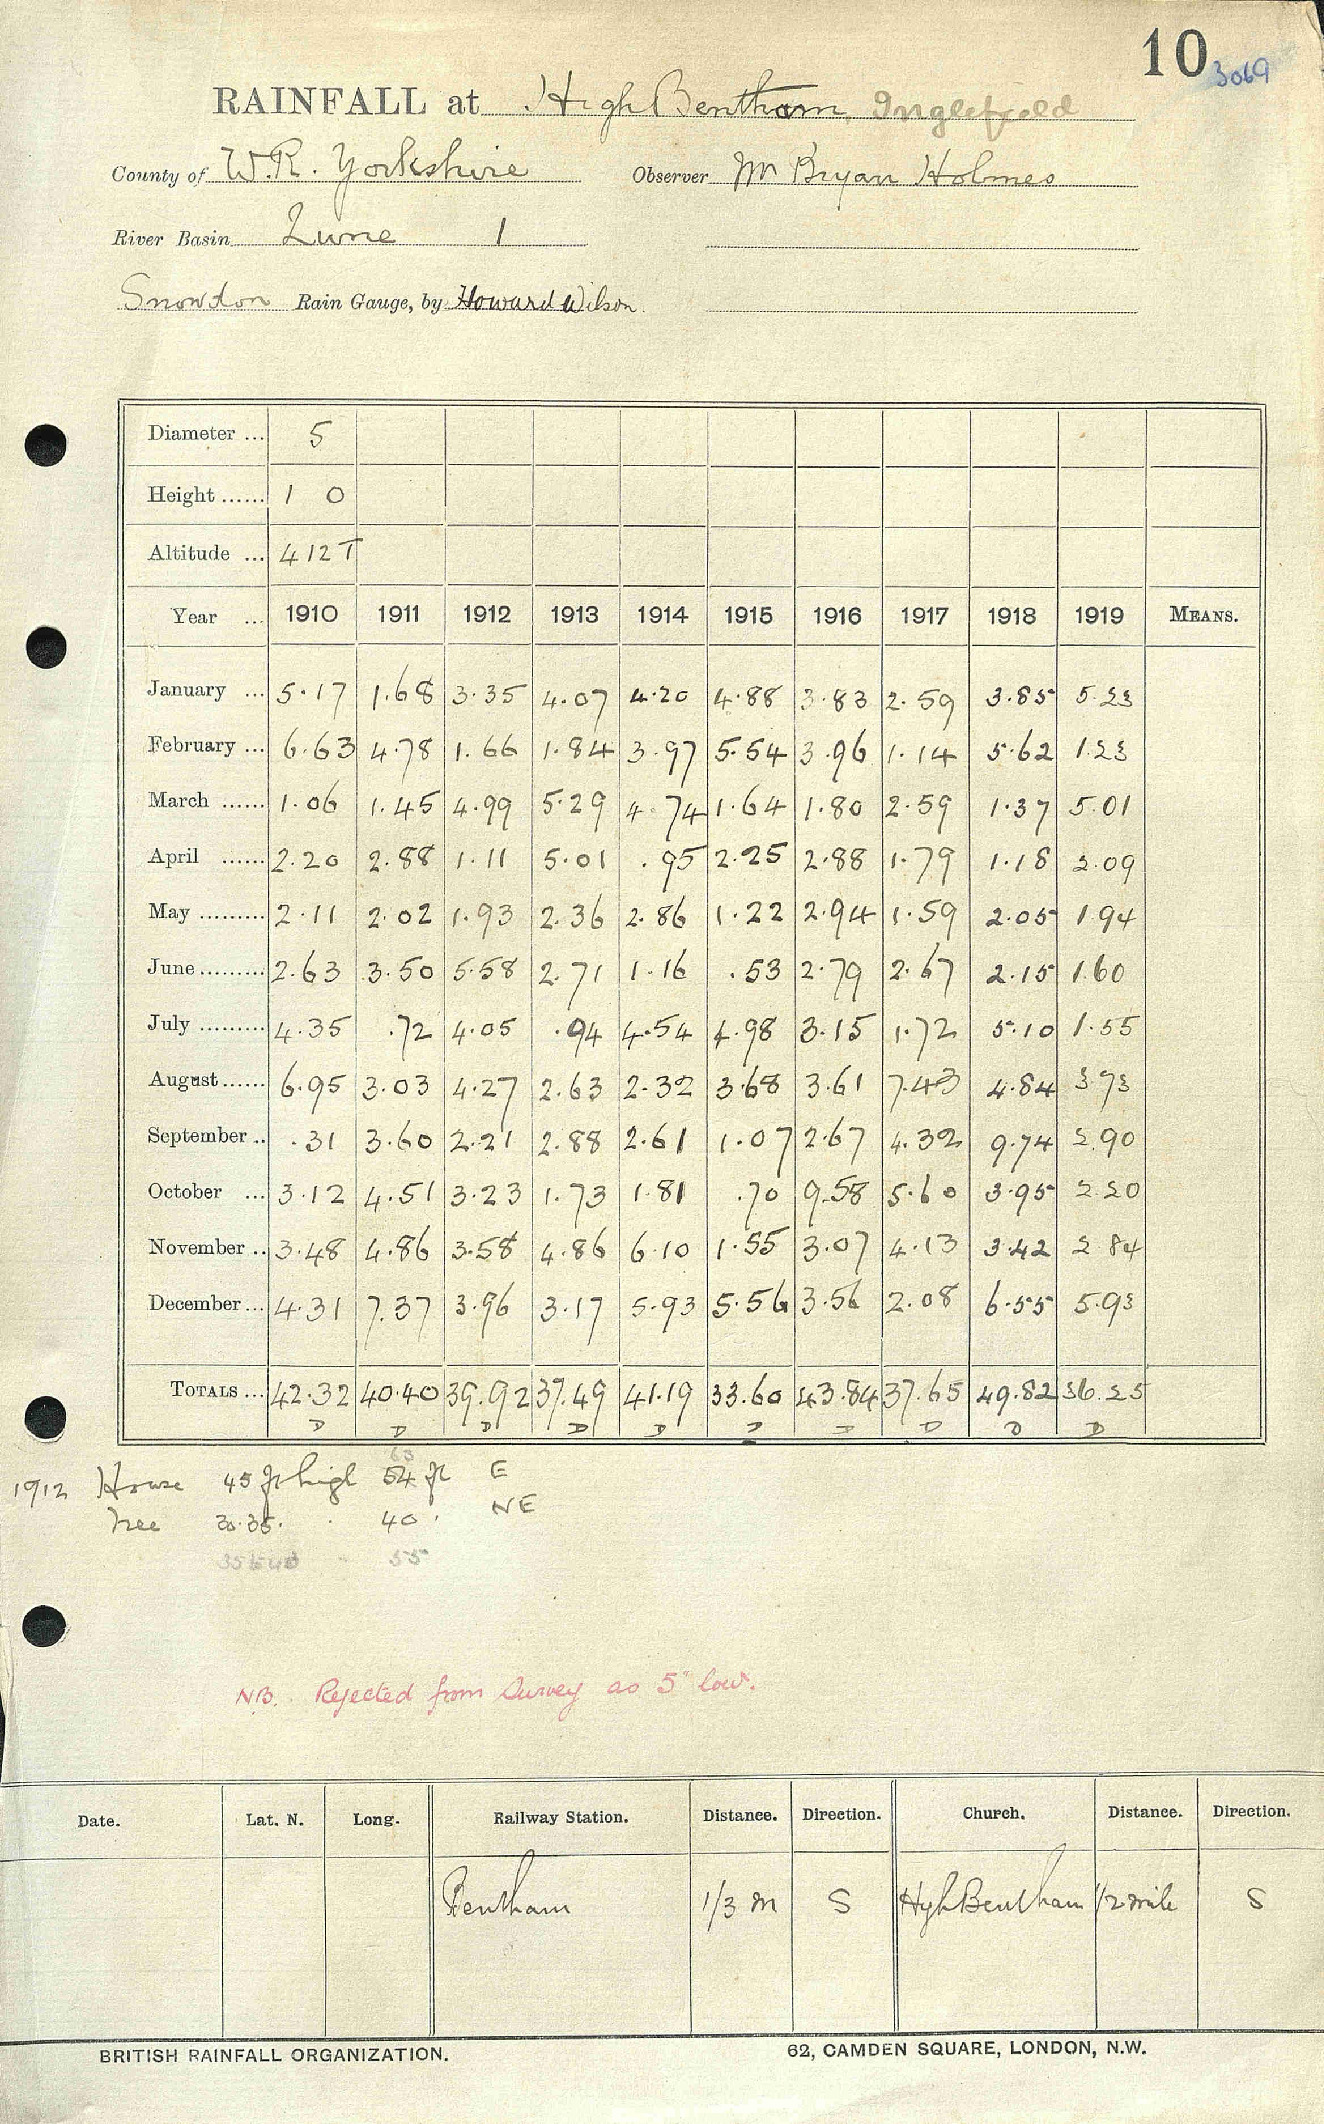 10
3069
RAINFALL at High Bentham, Inglefield
County of W.R. Yorkshire Observer Mr Bryan Holmes
River Basin Lune 1
Snowdon Rain Gauge, by Howard Wilson.
Diameter ... 5
Height ...... 1 0
Altitude ... 412 T
Year ... 1910 1911 1912 1913 1914 1915 1916 1917 1918 1919 MEANS.
January ... 5.17 1.68 3.35 4.07 4.20 4.88 3.83 2.59 3.85 5.23
February ... 6.63 4.78 1.66 1.84 3.97 5.54 3.96 1.14 5.62 1.23
March ...... 1.06 1.45 4.99 5.29 4.74 1.64 1.80 2.59 1.37 5.01
April ...... 2.20 2.88 1.11 5.01 .95 2.25 2.88 1.79 1.18 2.09
May ......... 2.11 2.02 1.93 2.36 2.86 1.22 2.94 1.59 2.05 1.94
June ......... 2.63 3.50 5.58 2.71 1.16 .53 2.79 2.67 2.15 1.60
July ......... 4.35 .72 4.05 .94 4.54 4.98 3.15 1.72 5.10 1.55
August ...... 6.95 3.03 4.27 2.63 2.32 3.68 3.61 7.43 4.84 3.73
September .. .31 3.60 2.21 2.88 2.61 1.07 2.67 4.32 9.74 2.90
October ... 3.12 4.51 3.23 1.73 1.81 .70 9.58 5.60 3.95 2.20
November .. 3.48 4.86 3.58 4.86 6.10 1.55 3.07 4.13 3.42 2.84
December ... 4.31 7.37 3.96 3.17 5.93 5.56 3.56 2.08 6.55 5.93
TOTALS ... 42.32 40.40 39.92 37.49 41.19 33.60 43.84 37.65 49.82 36.25
D D D D D D D D D D
63
1912 House 45 ft high 54 ft E
Tree 30.35. . 40 . NE
35 to 40 - 55
NB. Rejected from Survey as 5" low.
Date. Lat. N. Long. Railway Station. Distance. Direction. Church. Distance. Direction.
Bentham 1/3 m S High Bentham 1/2 mile S
BRITISH RAINFALL ORGANIZATION. 62, CAMDEN SQUARE, LONDON, N.W.